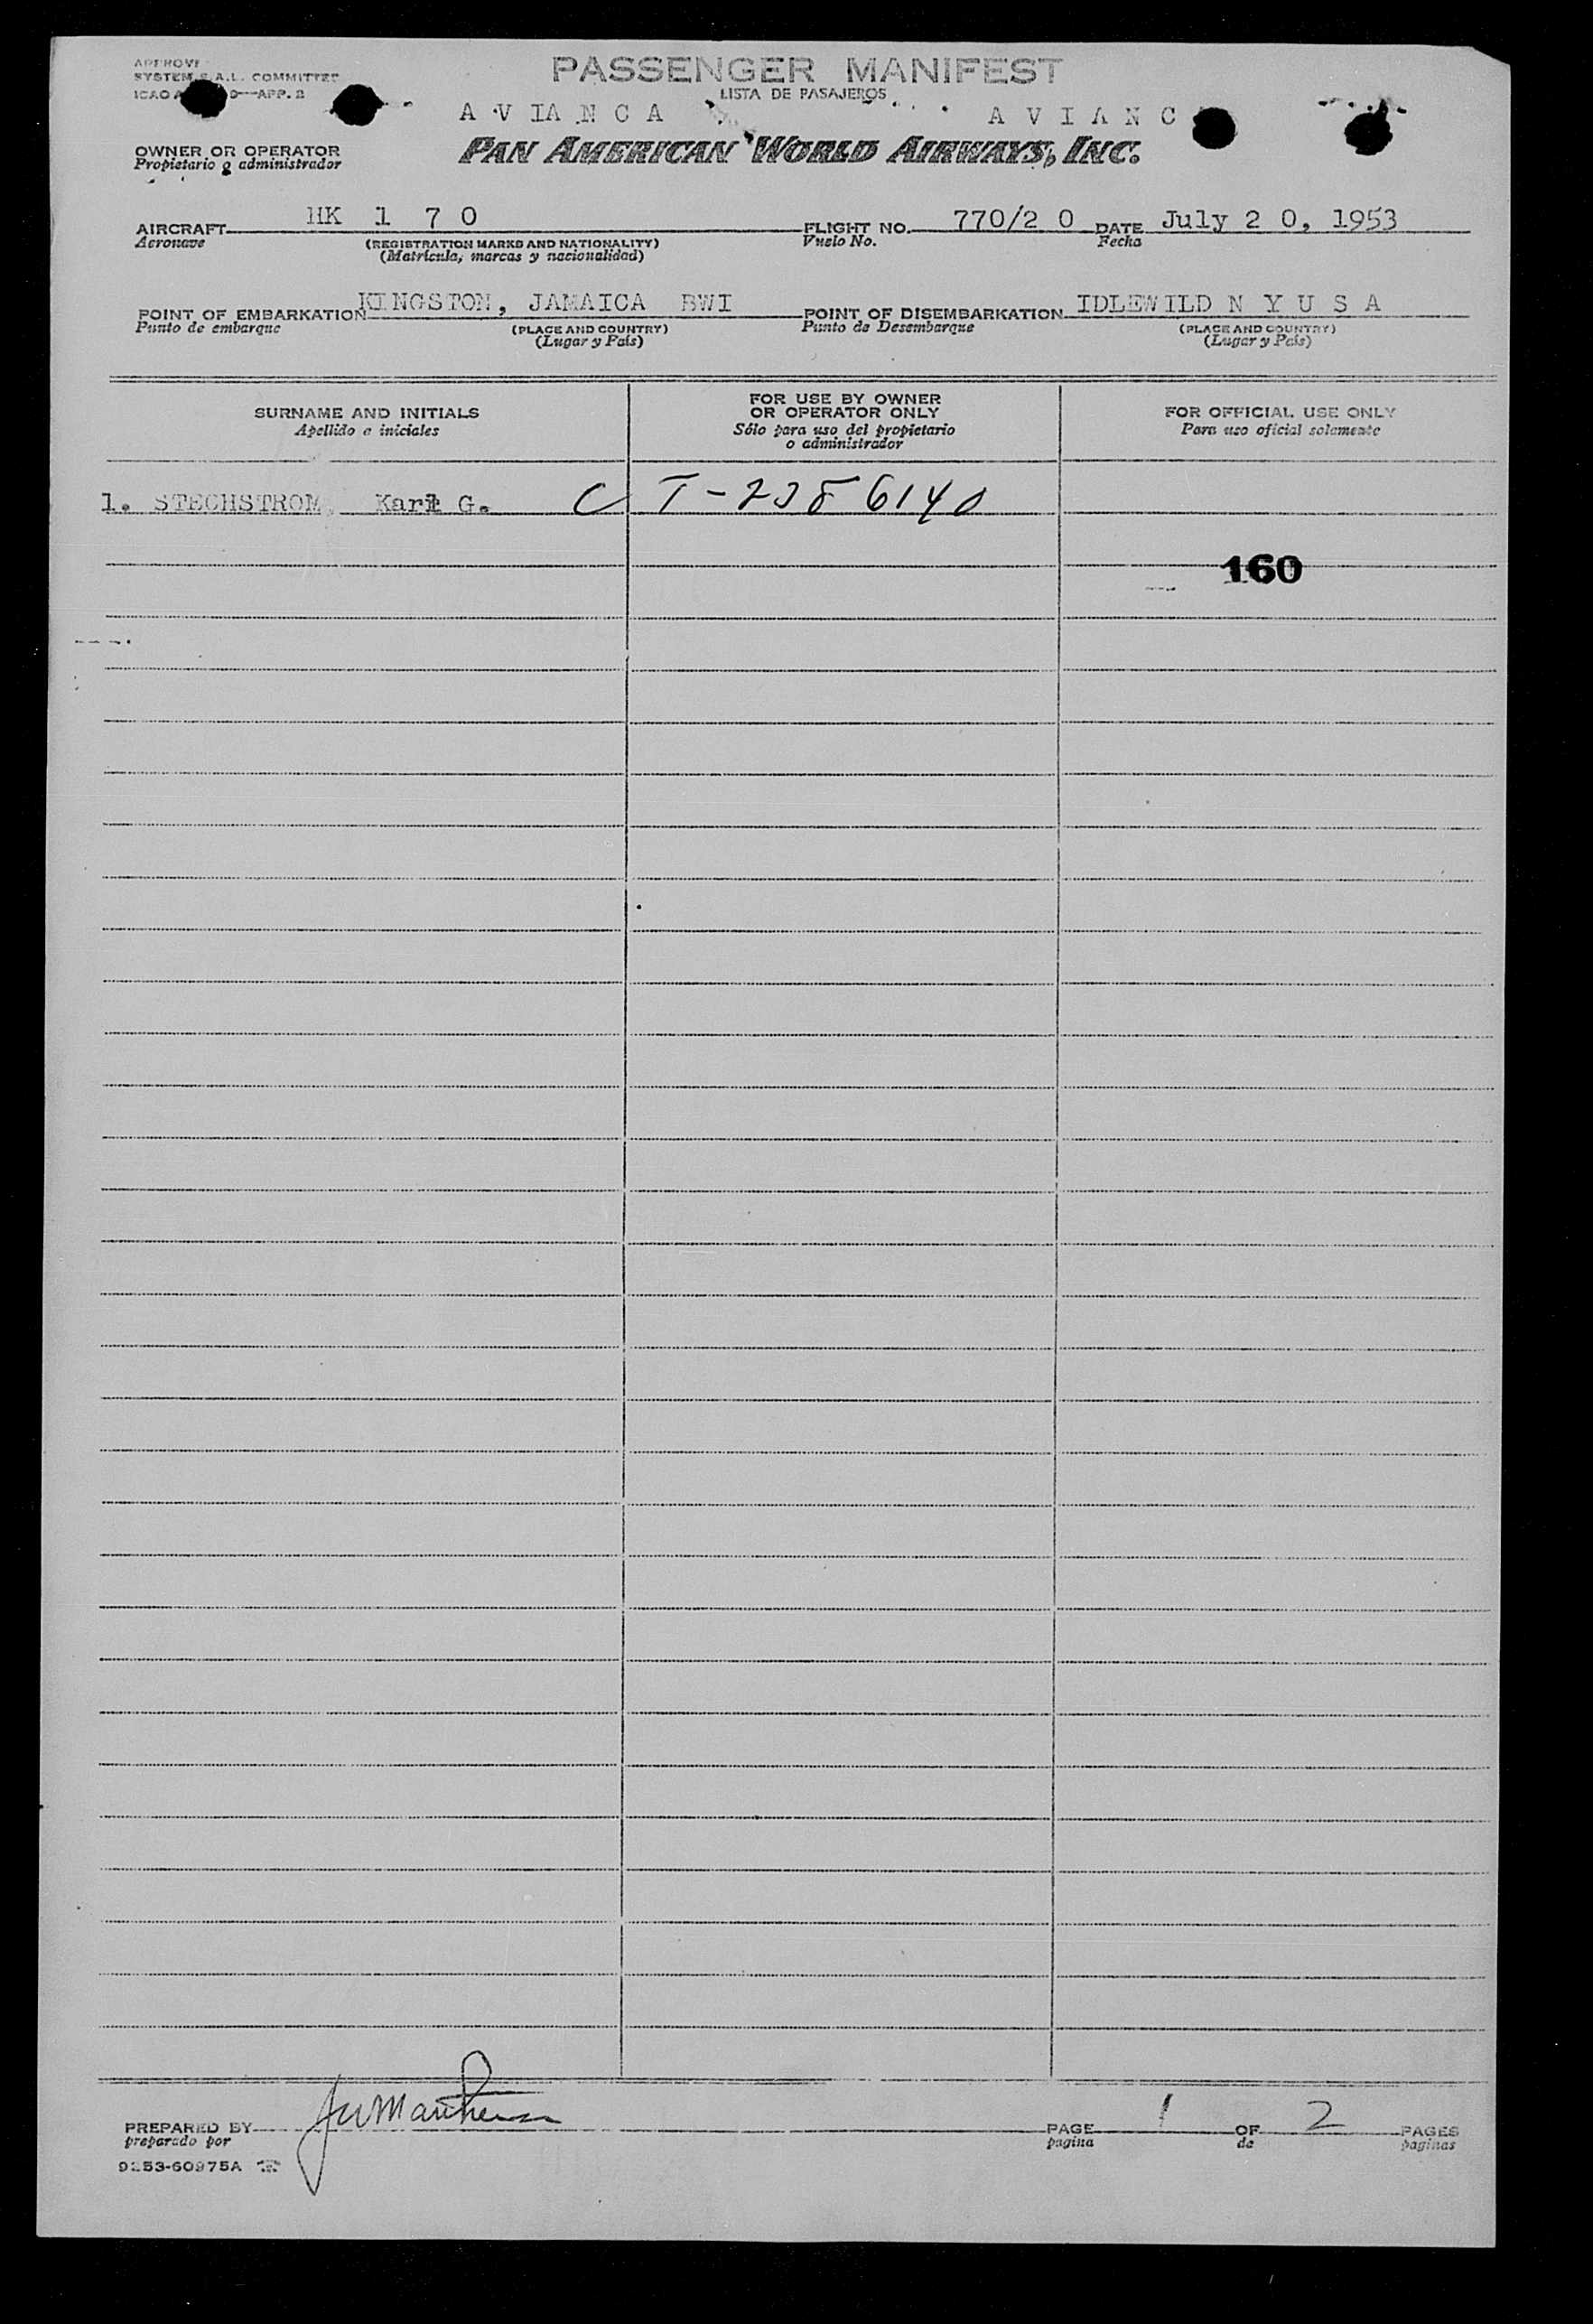 SYSTEM F.A.L. COMMITTEE
APP. 2
PASSENGER MANIFEST
LISTA DE PASAJEROS
A V IA N C A A V I A N C
OWNER OR OPERATOR
Propietario o administrador
PAN AMERICAN WORLD AIRWAYS, INC.
AIRCRAFT HK 1 7 0 FLIGHT NO. 770/2 0 DATE July 2 0, 1953
Aeronave (REGISTRATION MARKS AND NATIONALITY) Vuelo No. Fecha
(Matrícula, marcas y nacionalidad)
POINT OF EMBARKATION KINGSTON, JAMAICA BWI POINT OF DISEMBARKATION IDLEWILD N Y U S A
Punto de embarque (PLACE AND COUNTRY) Punto de Desembarque (PLACE AND COUNTRY)
(Lugar y País) (Lugar y País)
SURNAME AND INITIALS
Apellido e iniciales
FOR USE BY OWNER
OR OPERATOR ONLY
Sólo para uso del propietario
o administrador
FOR OFFICIAL USE ONLY
Para uso oficial solamente
1. STECHSTROM, Karl G. C T-2386140
160
PREPARED BY PAGE 1 OF 2 PAGES
preparado por pagina de paginas
9253-60975A